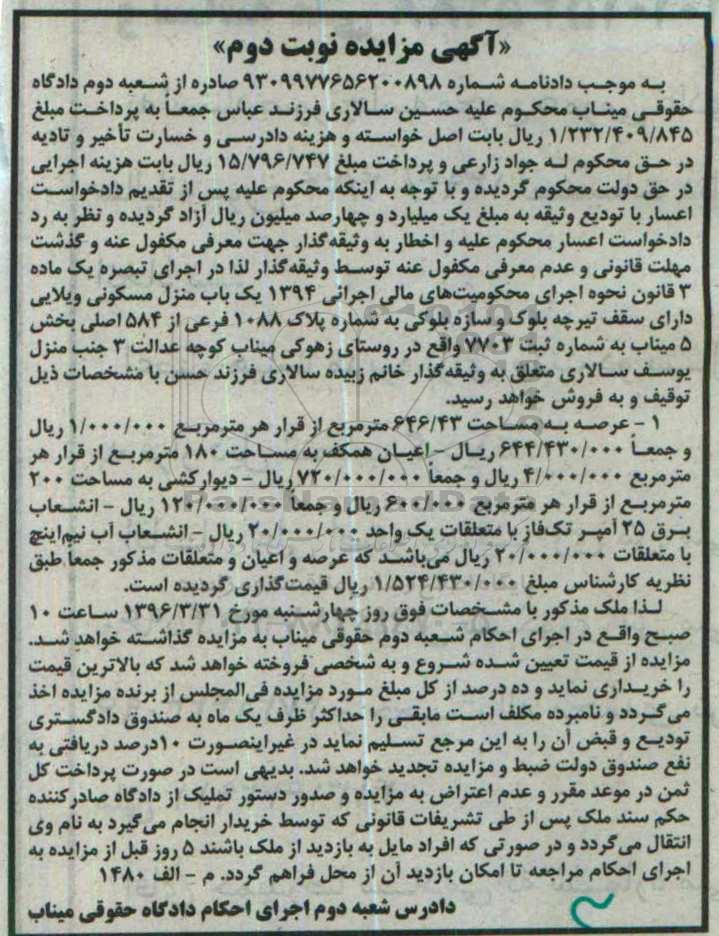 «آگهی مزایده نوبت دوم»
به موجب دادنامه شماره ۹۳۰۹۹۷۷۶۵۶۲۰۰۸۹۸ صادره از شعبه دوم دادگاه
حقوقی میناب محکوم علیه حسین سالاری فرزند عباس جمعاً به پرداخت مبلغ
۱/۲۳۲/۴۰۹/۸۴۵ ریال بابت اصل خواسته و هزینه دادرسی و خسارت تأخیر و تادیه
در حق محکوم له جواد زارعی و پرداخت مبلغ ۱۵/۷۹۶/۷۴۷ ریال بابت هزینه اجرایی
در حق دولت محکوم گردیده و با توجه به اینکه محکوم علیه پس از تقدیم دادخواست
اعسار با تودیع وثیقه به مبلغ یک میلیارد و چهارصد میلیون ریال آزاد گردیده و نظر به رد
دادخواست اعسار محکوم علیه و اخطار به وثیقه‌گذار جهت معرفی مکفول عنه و گذشت
مهلت قانونی و عدم معرفی مکفول عنه توسط وثیقه‌گذار لذا در اجرای تبصره یک ماده
۳ قانون نحوه اجرای محکومیت‌های مالی اجرائی ۱۳۹۴ یک باب منزل مسکونی ویلایی
دارای سقف تیرچه بلوک و سازه بلوکی به شماره پلاک ۱۰۸۸ فرعی از ۵۸۴ اصلی بخش
۵ میناب به شماره ثبت ۷۷۰۳ واقع در روستای زهوکی میناب کوچه عدالت ۳ جنب منزل
یوسف سالاری متعلق به وثیقه‌گذار خانم زبیده سالاری فرزند حسن با مشخصات ذیل
توقیف و به فروش خواهد رسید.
۱ - عرصه به مساحت ۶۴۶/۴۳ مترمربع از قرار هر مترمربع ۱/۰۰۰/۰۰۰ ریال
و جمعاً ۶۴۴/۴۳۰/۰۰۰ ریال - اعیان همکف به مساحت ۱۸۰ مترمربع از قرار هر
مترمربع ۴/۰۰۰/۰۰۰ ریال و جمعاً ۷۲۰/۰۰۰/۰۰۰ ریال - دیوارکشی به مساحت ۲۰۰
مترمربع از قرار هر مترمربع ۶۰۰/۰۰۰ ریال و جمعاً ۱۲۰/۰۰۰/۰۰۰ ریال - انشعاب
برق ۲۵ آمپر تک‌فاز با متعلقات یک واحد ۲۰/۰۰۰/۰۰۰ ریال - انشعاب آب نیم‌اینچ
با متعلقات ۲۰/۰۰۰/۰۰۰ ریال می‌باشد که عرصه و اعیان و متعلقات مذکور جمعاً طبق
نظریه کارشناس مبلغ ۱/۵۲۴/۴۳۰/۰۰۰ ریال قیمت‌گذاری گردیده است.
لذا ملک مذکور با مشخصات فوق روز چهارشنبه مورخ ۱۳۹۶/۳/۳۱ ساعت ۱۰
صبح واقع در اجرای احکام شعبه دوم حقوقی میناب به مزایده گذاشته خواهد شد.
مزایده از قیمت تعیین شده شروع و به شخصی فروخته خواهد شد که بالاترین قیمت
را خریداری نماید و ده درصد از کل مبلغ مورد مزایده فی‌المجلس از برنده مزایده اخذ
می‌گردد و نامبرده مکلف است مابقی را حداکثر ظرف یک ماه به صندوق دادگستری
تودیع و قبض آن را به این مرجع تسلیم نماید در غیراینصورت ۱۰درصد دریافتی به
نفع صندوق دولت ضبط و مزایده تجدید خواهد شد. بدیهی است در صورت پرداخت کل
ثمن در موعد مقرر و عدم اعتراض به مزایده و صدور دستور تملیک از دادگاه صادرکننده
حکم سند ملک پس از طی تشریفات قانونی که توسط خریدار انجام می‌گیرد به نام وی
انتقال می‌گردد و در صورتی که افراد مایل به بازدید از ملک باشند ۵ روز قبل از مزایده به
اجرای احکام مراجعه تا امکان بازدید آن از محل فراهم گردد. م - الف ۱۴۸۰
دادرس شعبه دوم اجرای احکام دادگاه حقوقی میناب